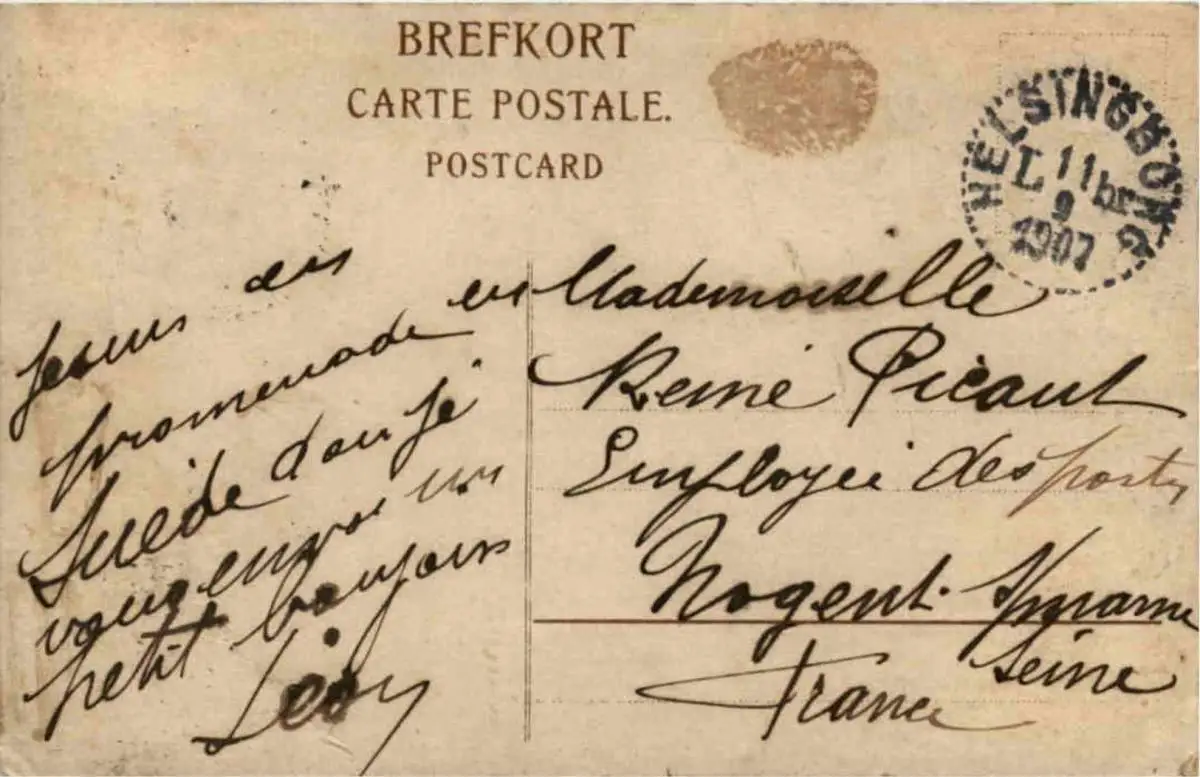 BREFKORT
CARTE POSTALE.
POSTCARD
HELSINGBORG
L 11 br
9
1907
Je suis en
promenade en
Suède d'ou je
vous envoi un
petit bonjour
Léon
Mademoiselle
Reine Picaut
Employée des postes
Nogent s/marne
Seine
France